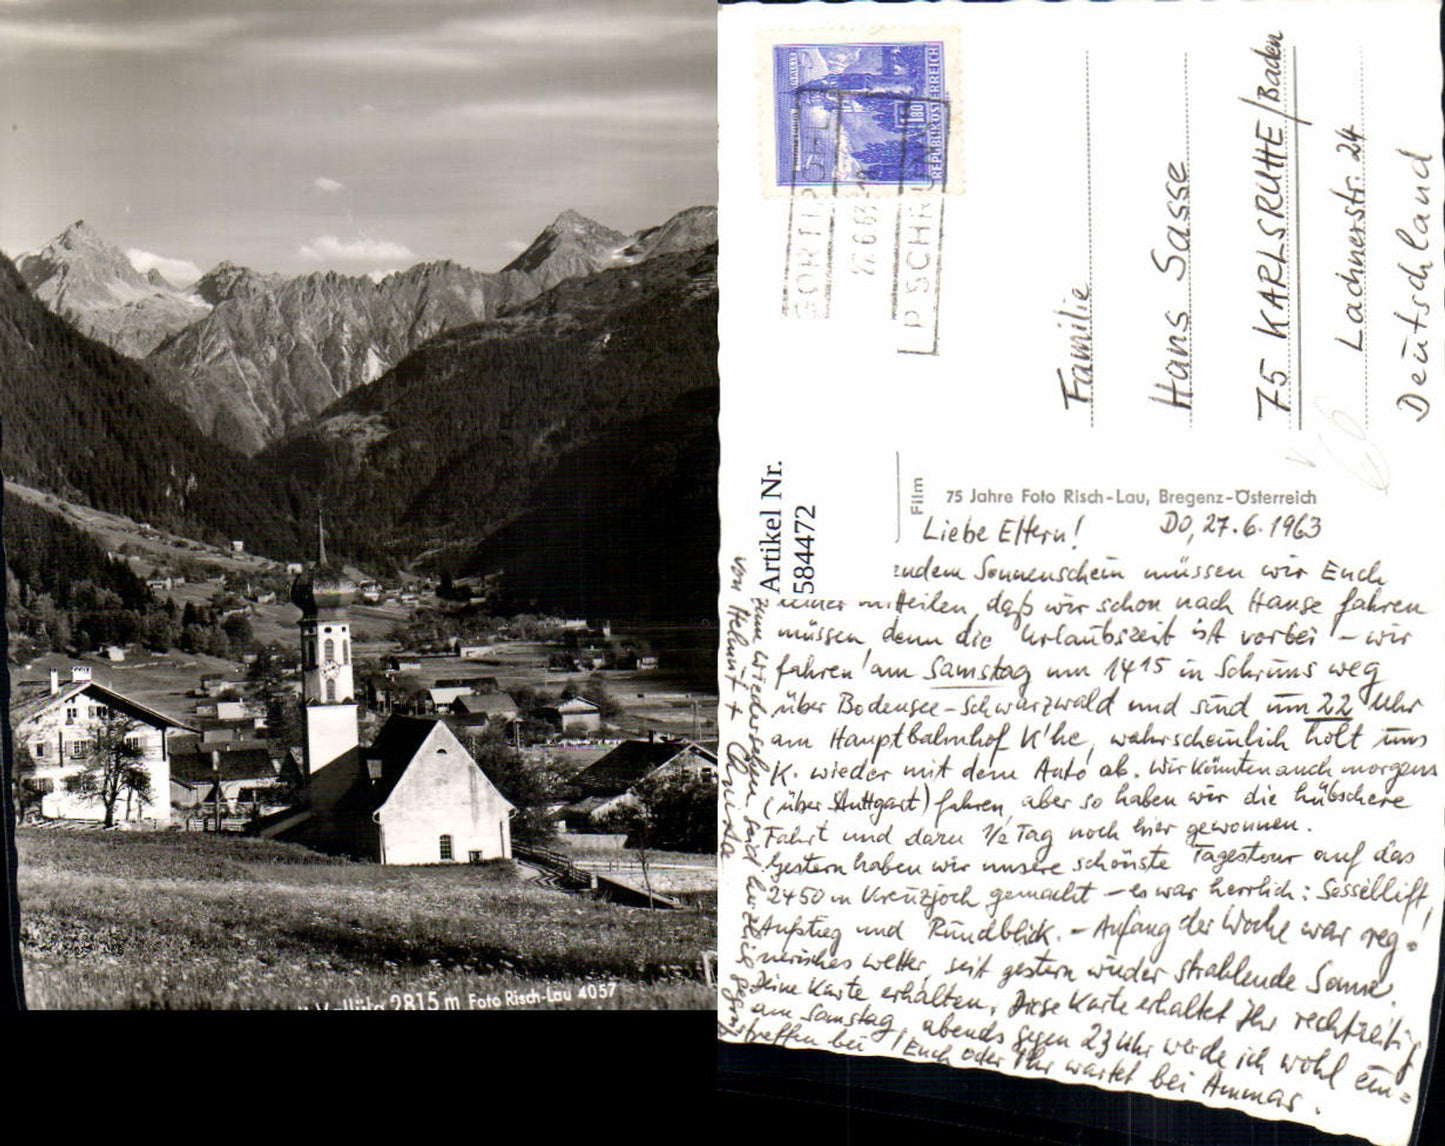 Vallüla 2815 m Foto Risch-Lau 4057
REPUBLIK ÖSTERREICH
1.80
27.6.63
SCHRUNS
Familie
Hans Sasse
75 KARLSRUHE/Baden
Lachnerstr. 24
Deutschland
Artikel Nr.
584472
Film
75 Jahre Foto Risch-Lau, Bregenz-Österreich
Liebe Eltern! DO, 27.6.1963
Sonnenschein müssen wir Euch
mitteilen, daß wir schon nach Hause fahren
müssen, denn die Urlaubszeit ist vorbei - wir
fahren am Samstag um 1415 in Schruns weg
über Bodensee-Schwarzwald und sind um 22 Uhr
am Hauptbahnhof K'he, wahrscheinlich holt uns
K. wieder mit dem Auto ab. Wir könnten auch morgens
(über Stuttgart) fahren, aber so haben wir die hübschere
Fahrt und dazu 1/2 Tag noch hier gewonnen.
Gestern haben wir unsere schönste Tagestour auf das
2450 m Kreuzjoch gemacht - es war herrlich: Sessellift,
Aufstieg und Rundblick. - Anfang der Woche war reg=
nerisches Wetter, seit gestern wieder strahlende Sonne.
Deine Karte erhalten. Diese Karte erhaltet Ihr rechtzeitig
am Samstag, abends gegen 23 Uhr werde ich wohl ein=
treffen bei Euch oder Ihr wartet bei Ammas.
Wiedersehen, seid herzlich gegrüßt
von Helmut +